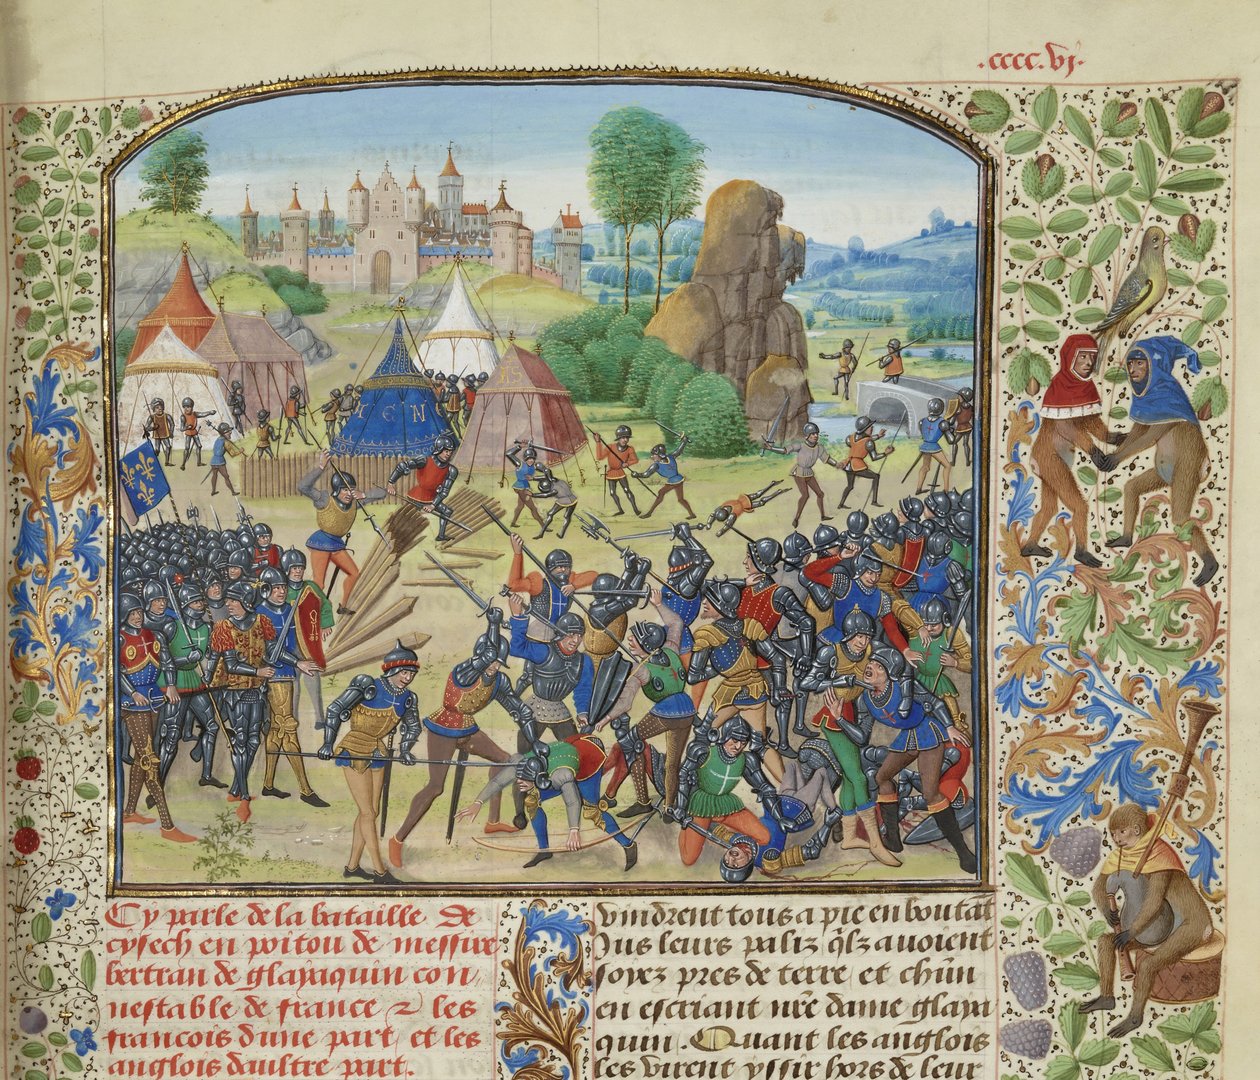 .cccc.vj.
Cy parle de la bataille de
cysech en poitou de messire
bertran de glayaquin con,
nestable de france ⁊ les
francois dune part et les
anglois daultre part.
vindrent tous a pie en boutãt
Jus leurs paliz q̃lz auoient
soyez pres de terre et chũn
en escriant nr̃e dame glaya
quin. Quant les anglois
les virent yssir hors de leur